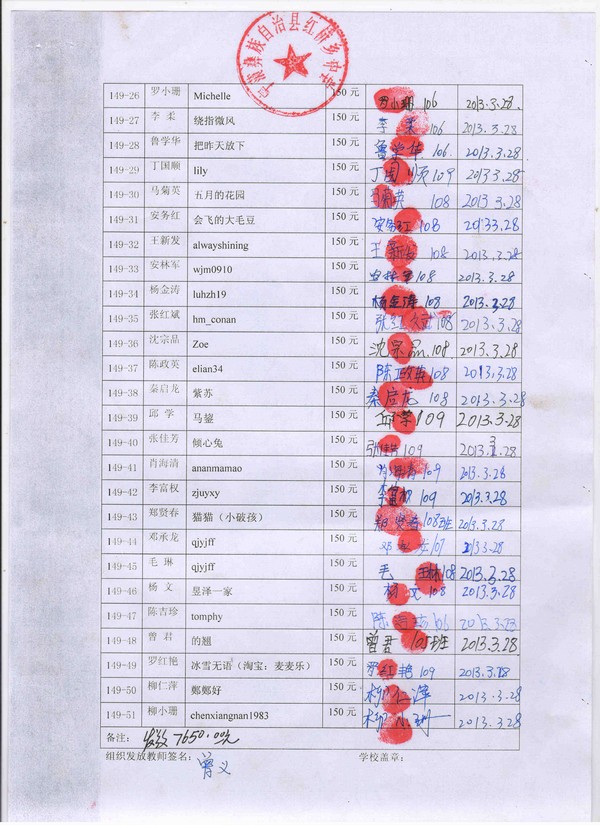 宁蒗彝族自治县红桥乡中学
149-26 罗小珊 Michelle 150 元 罗小珊 106 2013.3.28.
149-27 李 柔 绕指微风 150 元 李 柔 106 2013.3.28
149-28 鲁学华 把昨天放下 150 元 鲁学华 106. 2013.3.28
149-29 丁国顺 lily 150 元 丁国顺 109 2013.3.28
149-30 马菊英 五月的花园 150 元 马菊英 108 2013.3.28
149-31 安务红 会飞的大毛豆 150 元 安务红 108 2013.3.28
149-32 王新发 alwayshining 150 元 王新发 108 2013.3.28
149-33 安林军 wjm0910 150 元 108 2013.3.28
149-34 杨金涛 luhzh19 150 元 杨金涛 108 2013.3.28
149-35 张红斌 hm_conan 150 元 张红斌 108 2013.3.28
149-36 沈宗品 Zoe 150 元 沈宗品 108 2013.3.28
149-37 陈政英 elian34 150 元 陈政英 108 2013.3.28
149-38 秦启龙 紫苏 150 元 秦启龙 108 2013.3.28
149-39 邱 学 马鋆 150 元 邱学 109 2013.3.28
149-40 张佳芳 倾心兔 150 元 张佳芳 109 2013.3.28
149-41 肖海清 ananmamao 150 元 肖海清 109 2013.3.28
149-42 李富权 zjuyxy 150 元 李富权 109 2013.3.28
149-43 郑贤春 猫猫（小破孩） 150 元 郑贤春 108班 2013.3.28
149-44 邓承龙 qjyjff 150 元 107 2013.3.28
149-45 毛 琳 qjyjff 150 元 毛 108 2013.3.28
149-46 杨 文 昱泽一家 150 元 杨 文 108 2013.3.28
149-47 陈吉珍 tomphy 150 元 陈吉珍 106 2013.3.23
149-48 曾 君 的翘 150 元 曾君 105班 2013.3.28
149-49 罗红艳 冰雪无语（淘宝：麦麦乐） 150 元 罗红艳 109 2013.3.28
149-50 柳仁萍 鄭鄭好 150 元 柳仁萍 2013.3.28
149-51 柳小珊 chenxiangnan1983 150 元 柳小珊 2013.3.28
备注： 发放 7650.00元
组织发放教师签名： 曾义 学校盖章：